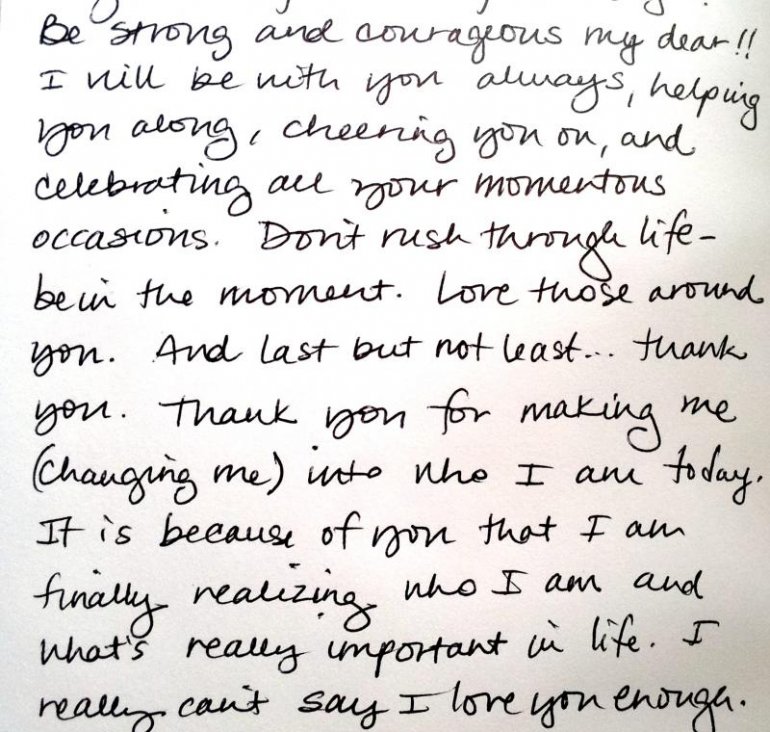 Be strong and courageous my dear!!
I will be with you always, helping
you along, cheering you on, and
celebrating all your momentous
occasions. Don't rush through life-
be in the moment. Love those around
you. And last but not least... thank
you. Thank you for making me
(changing me) into who I am today.
It is because of you that I am
finally realizing who I am and
what's really important in life. I
really can't say I love you enough.